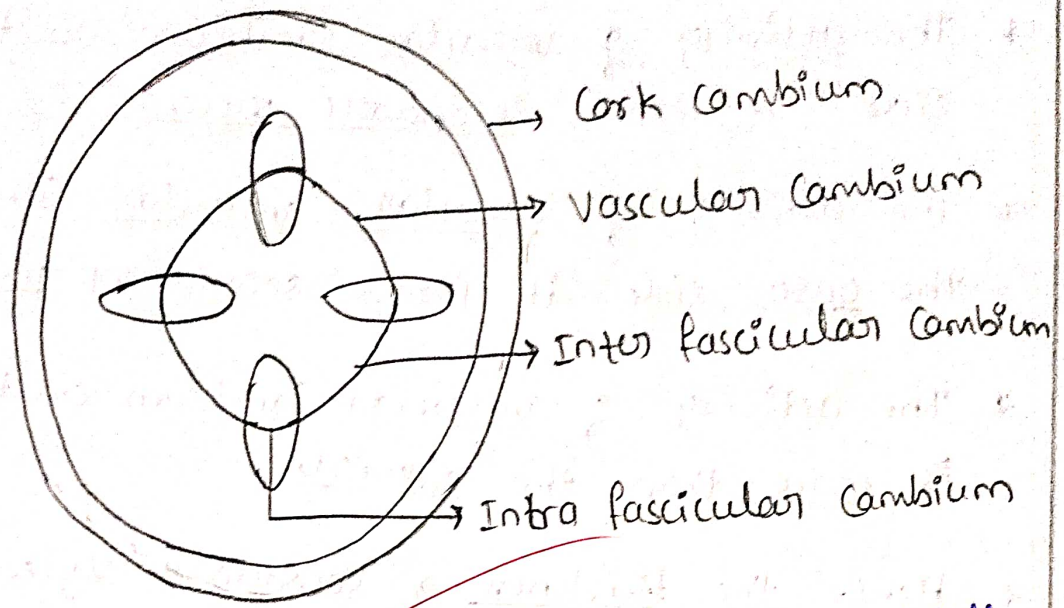 Cork Cambium
Vascular Cambium
Inter fascicular Cambium
Intra fascicular Cambium